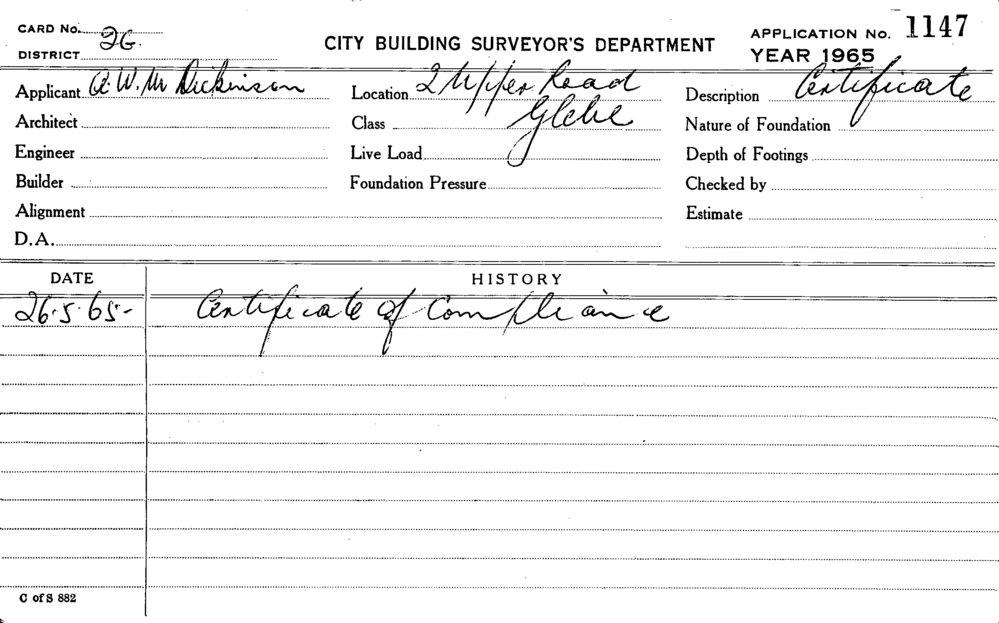 CARD No. 2G.
DISTRICT
CITY BUILDING SURVEYOR'S DEPARTMENT
APPLICATION No. 1147
YEAR 1965
Applicant W. M Dickinson
Location 2 Upper Road
Glebe
Description Certificate
Architect
Class
Nature of Foundation
Engineer
Live Load
Depth of Footings
Builder
Foundation Pressure
Checked by
Alignment
Estimate
D.A.
DATE HISTORY
26.5.65- Certificate of Compliance
C of S 882